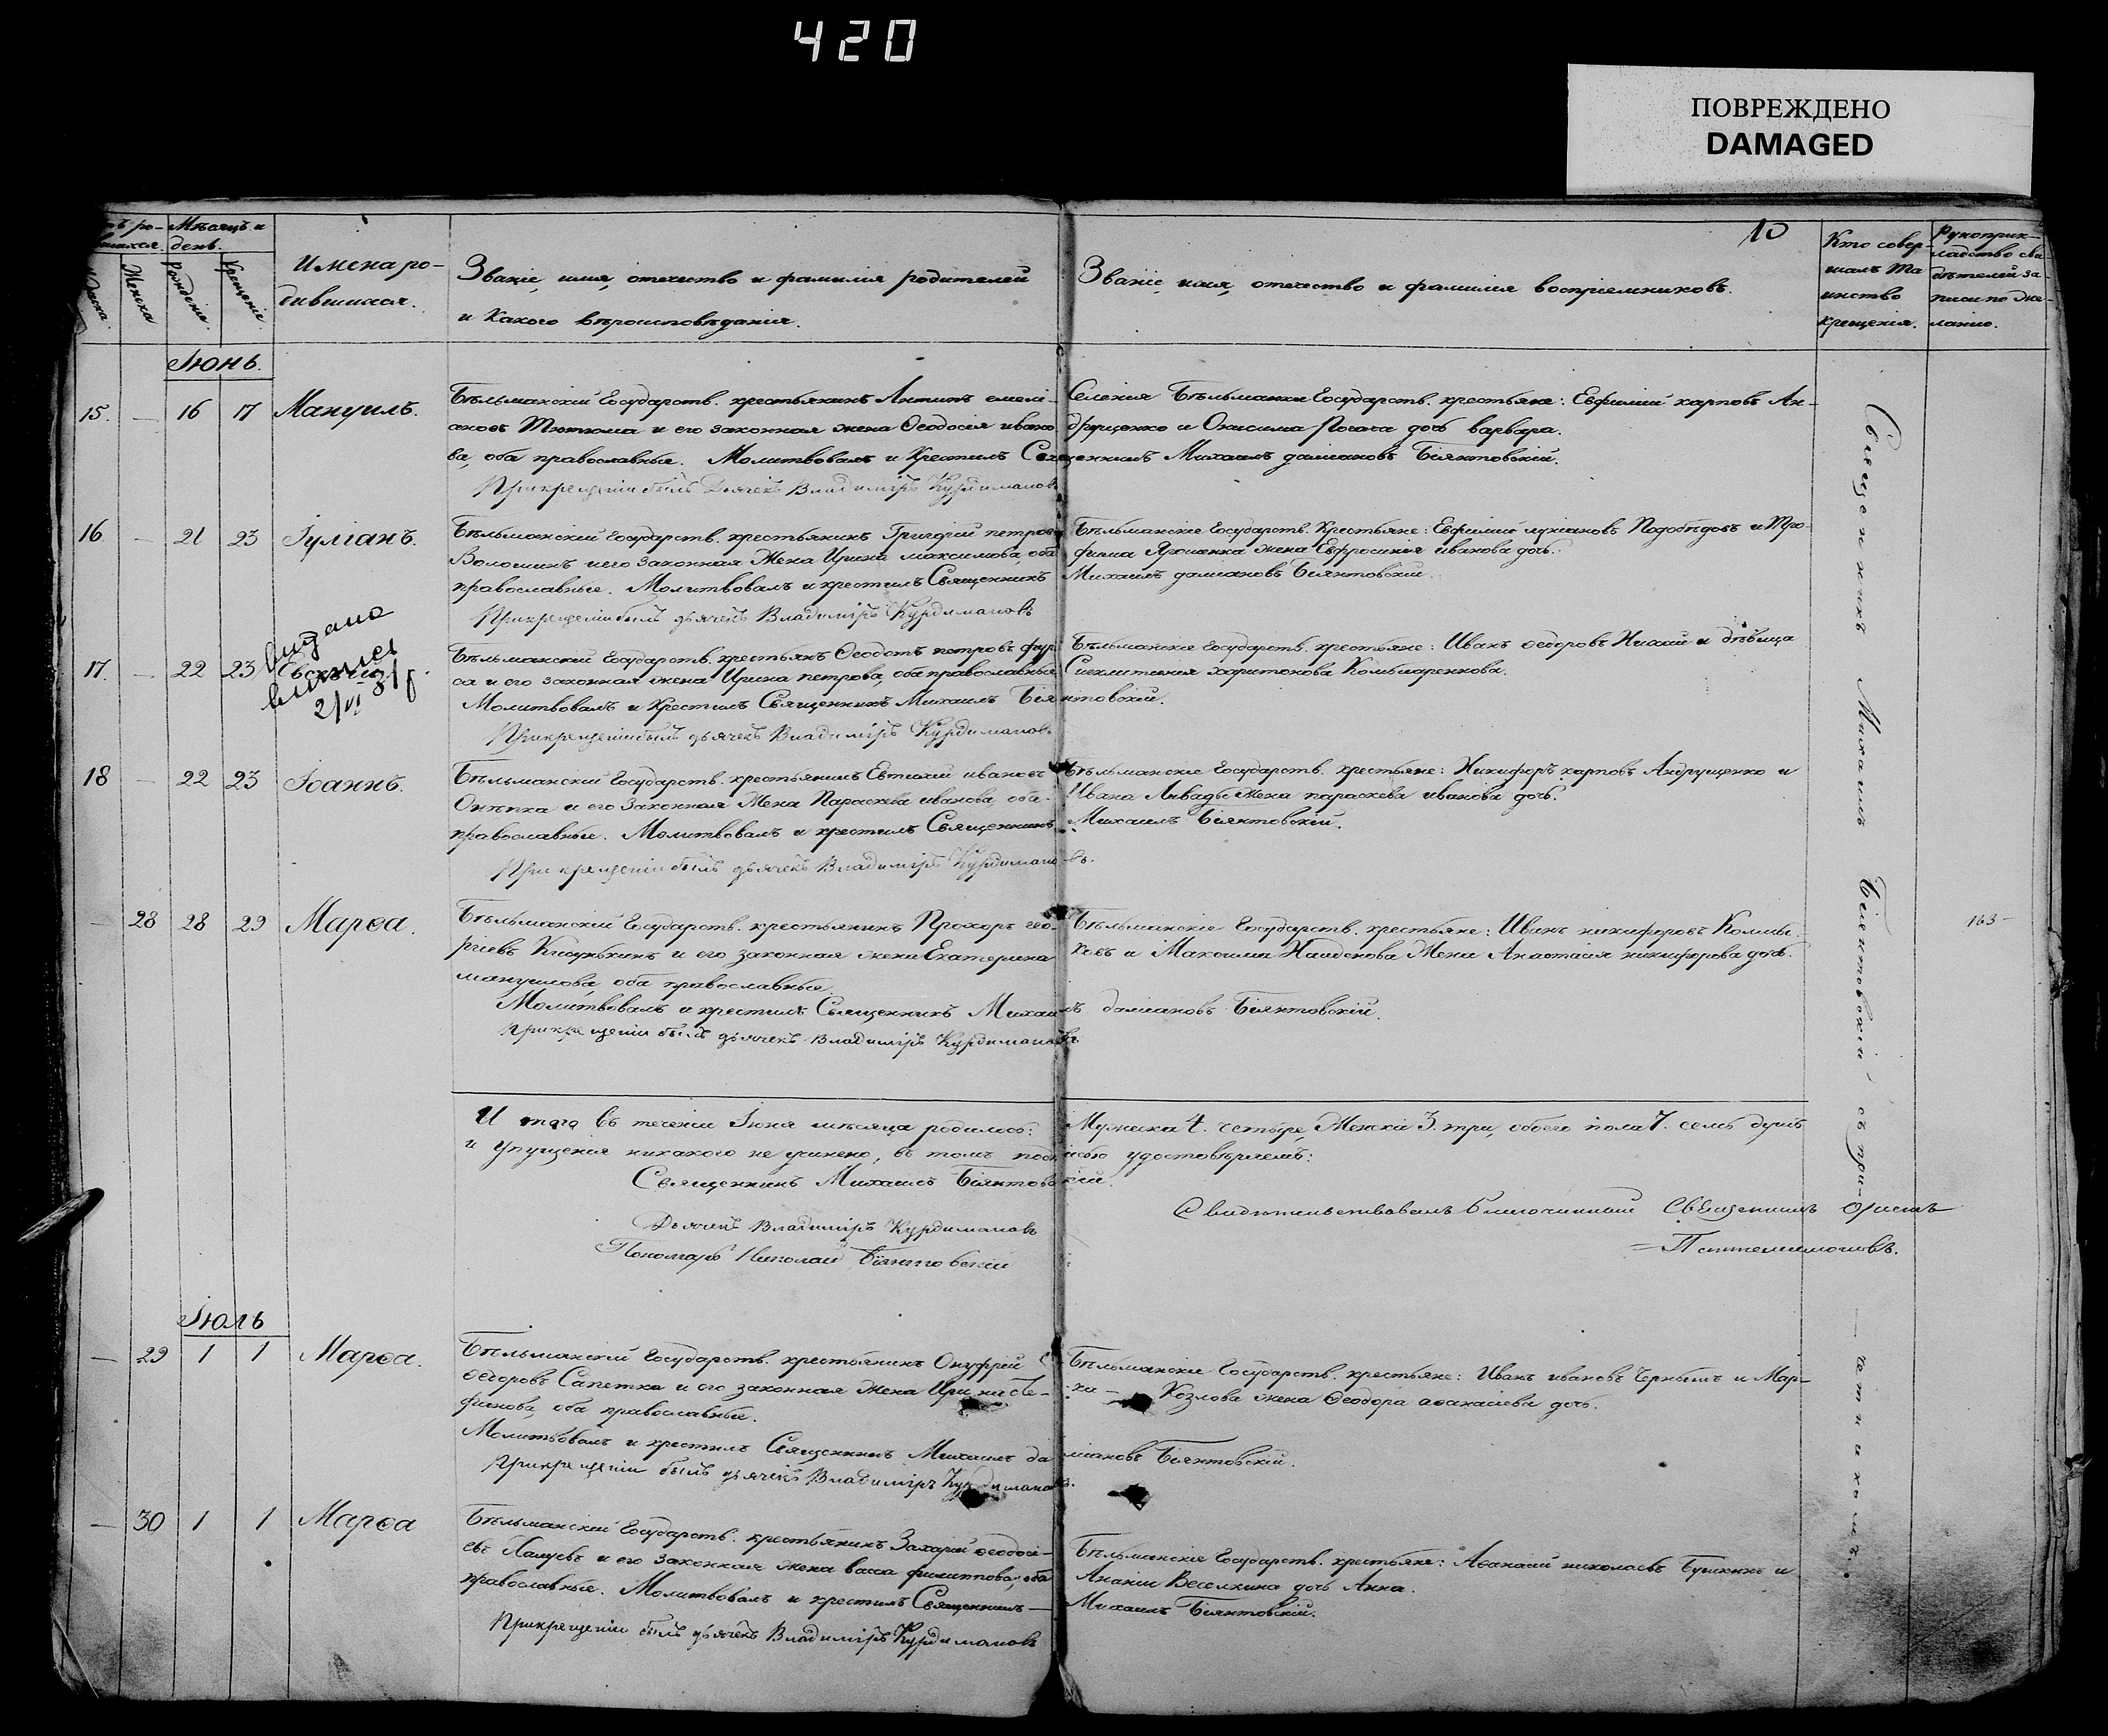 420
ПОВРЕЖДЕНО
DAMAGED
10
Мѣсяцъ и день.
Мужеска. Женска
Рожденія. Крещенія.
Имена ро-
дившихся.
Званіе, имя, отчество и фамилія родителей
и какого вѣроисповѣданія.
Званіе, имя, отчество и фамилія воспріемниковъ.
Кто совер-
шалъ та
инство
крещенія.
Рукоприк-
ладство сви-
дѣтелей за-
писи по же-
ланію.
Іюнь.
15. — 16 17 Мануилъ.
Бѣльманскій Государств. крестьянинъ Антипъ емелі-
ановъ Тютюма и его законная жена Ѳеодосія ивано-
ва, оба православные. Молитвовалъ и Крестилъ Свя
При крещеніи былъ Дьячекъ Владиміръ Курдимановъ
Селенія Бѣльманки Государств. крестьяне: Евфимій карповъ Ан-
друщенко и Онисима Рогача дочь варвара.
щенникъ Михаилъ даміановъ Біянтовскій.
16 — 21 23 Іуліанъ.
Бѣльманскій Государств. крестьянинъ Григорій петровъ
Волошинъ и его законная Жена Ирина максимова, оба
православные. Молитвовалъ и крестилъ Священникъ
При крещеніи былъ дьячекъ Владиміръ Курдимановъ
Бѣльманскіе Государств. Крестьяне: Евфимій лукіановъ Подобѣдовъ и Тро-
фима Ярошенка жена Евфросинія иванова дочь.
Михаилъ даміановъ Біянтовскій.
17. — 22 23 Евсевій.
Выдана
выпись
2/VI 31 г.
Бѣльманскій Государств. крестьянъ Ѳеодотъ петровъ фур
са и его законная жена Ирина петрова, оба православные,
Молитвовалъ и Крестилъ Священникъ Михаилъ Бія
При крещеніи былъ дьячекъ Владиміръ Курдимановъ
Бѣльманскіе Государств. крестьяне: Иванъ ѳедоровъ и дѣвица
Синклитикія харитонова
нтовскій.
18 — 22 23 Іоаннъ.
Бѣльманскій Государств. крестьянинъ Евтихій ивановъ
и его законная Жена Параскева иванова оба
православные. Молитвовалъ и крестилъ Священникъ
При крещеніи былъ дьячекъ Владиміръ Курдимановъ.
Бѣльманскіе Государств. крестьяне: Никифоръ карповъ Андрущенко и
Ивана жена параскева иванова дочь.
Михаилъ Біянтовскій.
— 28 28 29 Марѳа.
Бѣльманскій Государств. крестьянинъ Прохоръ гео-
ргіевъ и его законная жена Екатерина
мануилова, оба православные.
Молитвовалъ и крестилъ Священникъ Михаи
При крещеніи былъ дьячекъ Владиміръ Курдимановъ
Бѣльманскіе Государств. крестьяне: Иванъ никифоровъ
ковъ и Максима Найденова Жена Анастасія никифорова дочь.
лъ даміановъ Біянтовскій.
163 —
И того въ теченіи Іюня мѣсяца родилось: Мужеска 4. четыре, Женска 3. три, обоего пола 7. семь душъ
и упущенія никакого не учинено, въ томъ подписью удостовѣряемъ:
Священникъ Михаилъ Біянтовскій.
Дьячекъ Владиміръ Курдимановъ
Пономарь Николай Біянтовскій
Свидѣтельствовалъ Благочинный Священникъ
Пантелеимоновъ.
Іюль
— 29 1 1 Марѳа.
Бѣльманскій Государств. крестьянинъ Онуфрій
ѳедоровъ Сапетка и его законная жена Ирина Те-
финова, оба православные.
Молитвовалъ и крестилъ Священникъ Михаилъ да
При крещеніи былъ дьячекъ Владиміръ Курдимановъ.
Бѣльманскіе Государств. крестьяне: Иванъ ивановъ и Мар-
ка — Козлова жена Ѳеодора аѳанасіева дочь.
міановъ Біянтовскій.
— 30 1 1 Марѳа
Бѣльманскій Государств. крестьянинъ Захарій ѳеодосі-
евъ и его законная жена васса филиппова, оба
православные. Молитвовалъ и крестилъ Священникъ —
При крещеніи былъ дьячекъ Владиміръ Курдимановъ
Бѣльманскіе Государств. крестьяне: Аѳанасій николаевъ и
Ананіи Веселкина дочь Анна.
Михаилъ Біянтовскій.
Священникъ Михаилъ Біянтовскій съ при-
четникомъ.